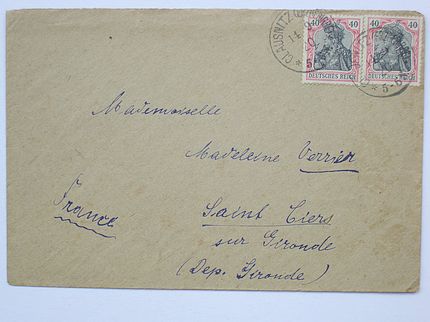 CLAUSNITZ
40 40 40 40
DEUTSCHES REICH DEUTSCHES REICH
Mademoiselle
Madeleine Verrier
France
Saint Ciers
sur Gironde
(Dep. Gironde)